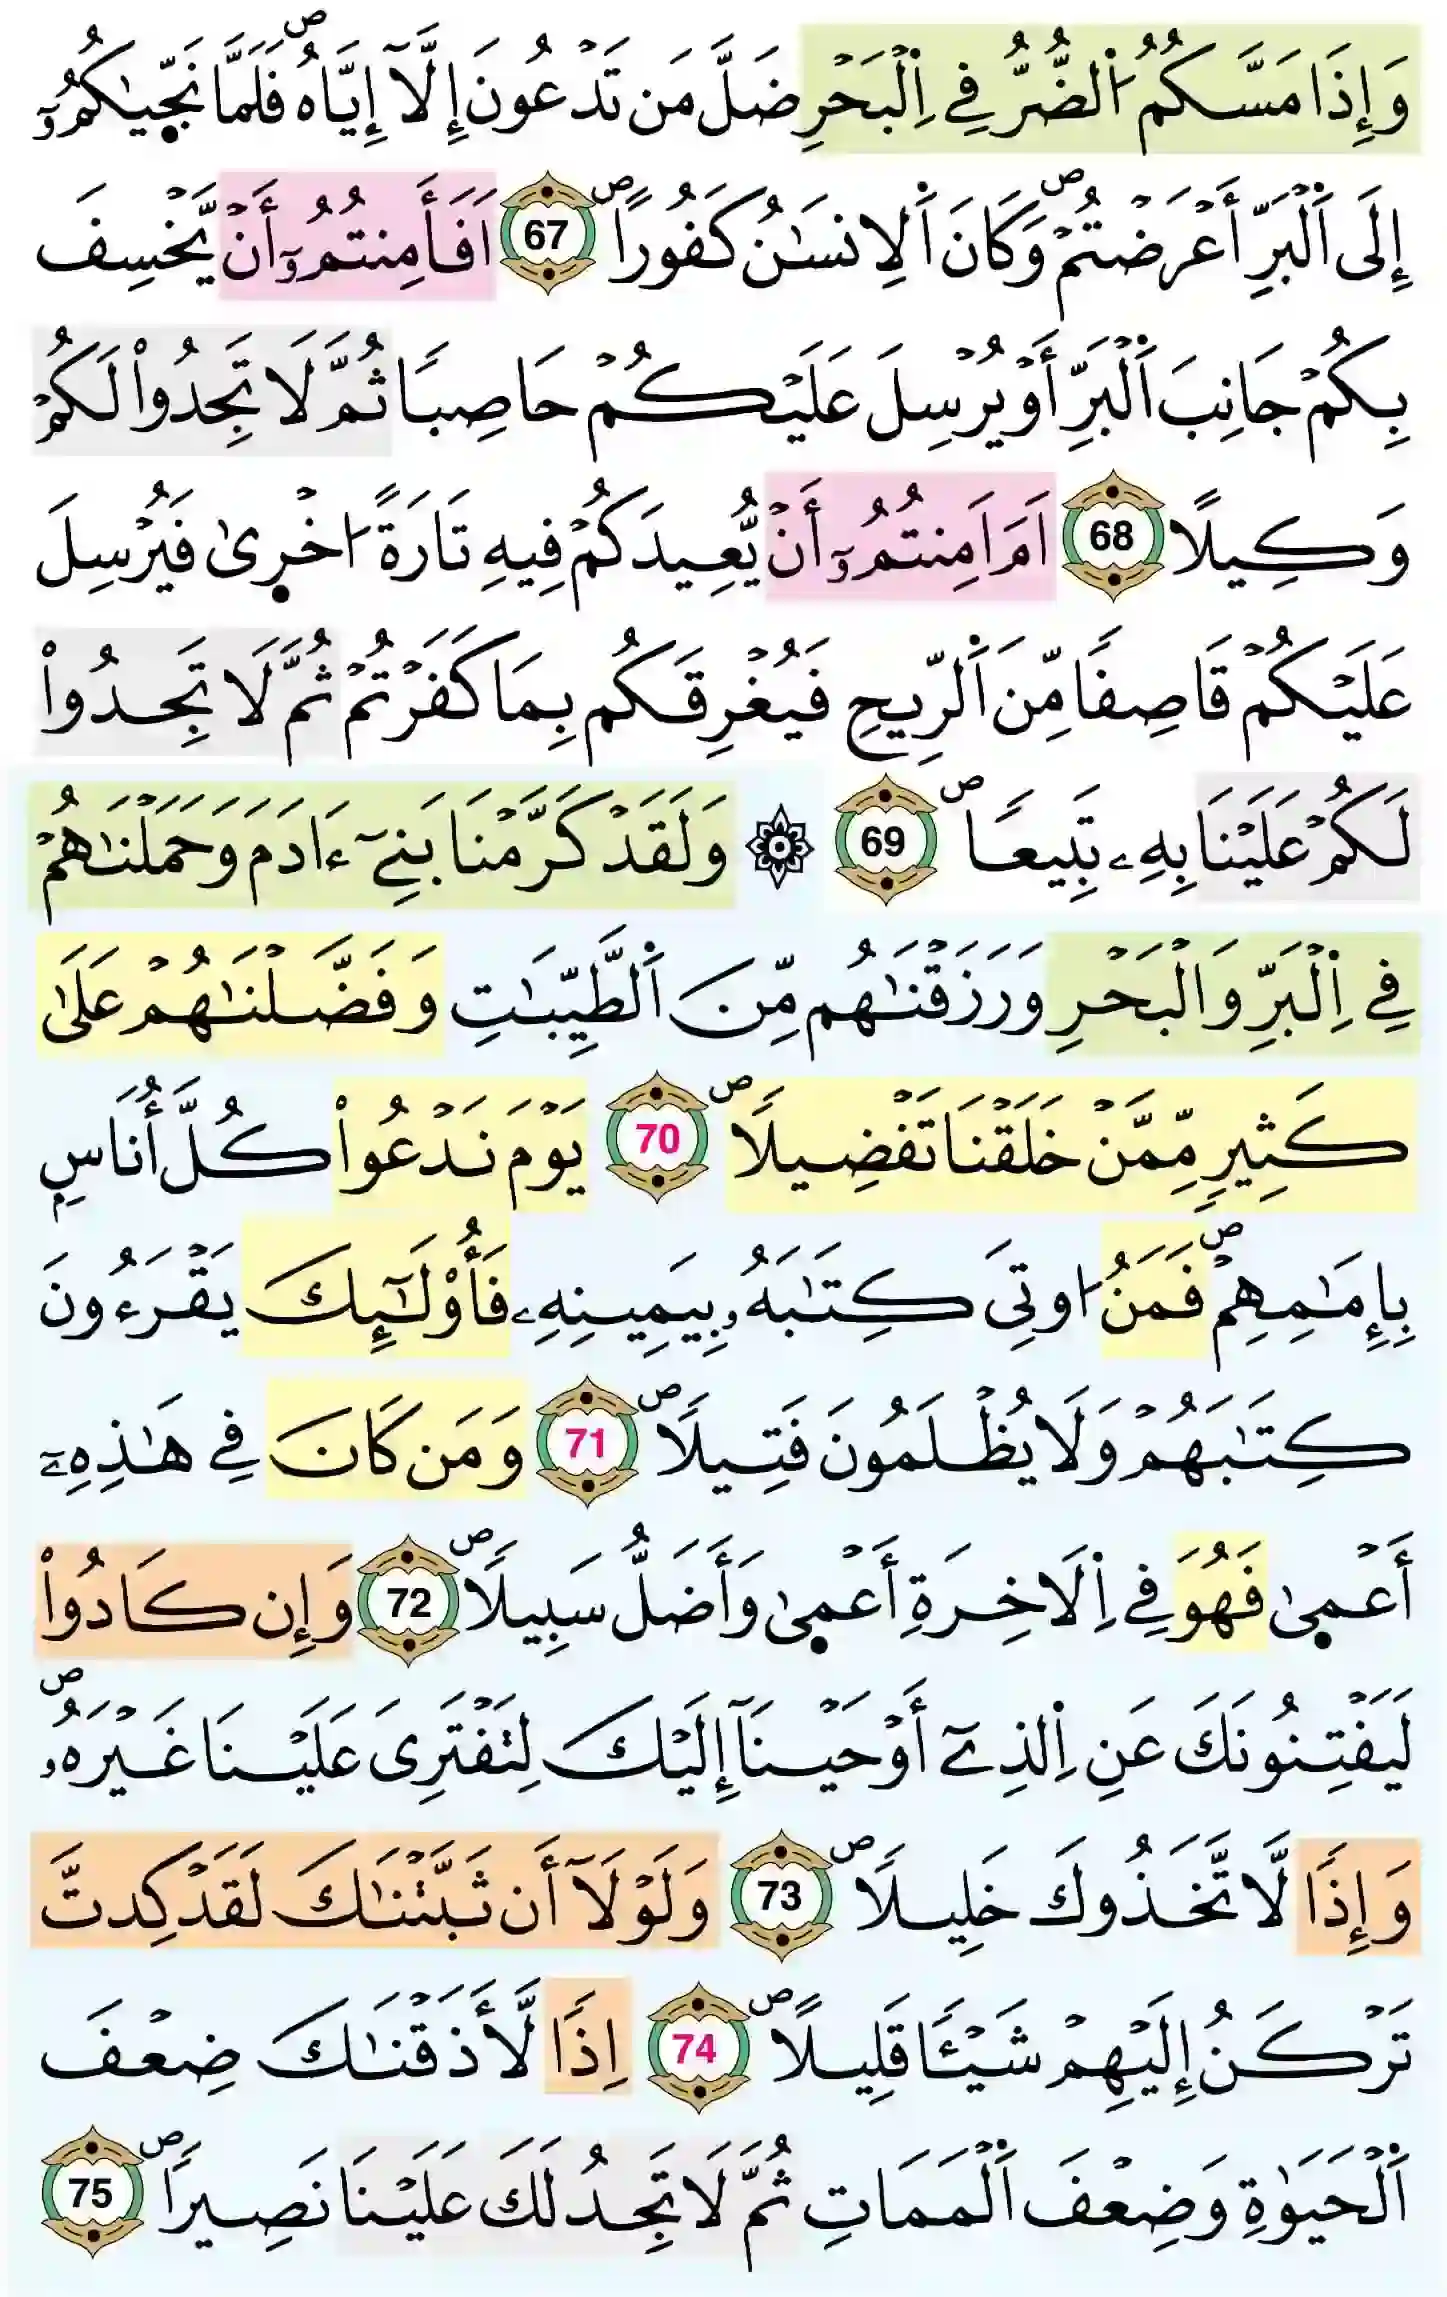 وَإِذَا مَسَّكُمُ اُ۬لضُّرُّ فِے اِ۬لْبَحْرِ ضَلَّ مَن تَدْعُونَ إِلَّآ إِيَّاهُۖ فَلَمَّا نَجّ۪يٰكُمُۥٓ
إِلَى اَ۬لْبَرِّ أَعْرَضْتُمْۖ وَكَانَ اَ۬لِانسَٰنُ كَفُوراًۖ 67 اَفَأَمِنتُمُۥٓ أَنْ يَّخْسِفَ
بِكُمْ جَانِبَ اَ۬لْبَرِّ أَوْ يُرْسِلَ عَلَيْكُمْ حَاصِباٗ ثُمَّ لَا تَجِدُواْ لَكُمْ
وَكِيلاً 68 اَمَ اَمِنتُمُۥٓ أَنْ يُّعِيدَكُمْ فِيهِ تَارَةً ا۟خْر۪يٰ فَيُرْسِلَ
عَلَيْكُمْ قَاصِفاٗ مِّنَ اَ۬لرِّيحِ فَيُغْرِقَكُم بِمَا كَفَرْتُمْ ثُمَّ لَا تَجِدُواْ
لَكُمْ عَلَيْنَا بِهِۦ تَبِيعاٗۖ 69 ۞ وَلَقَدْ كَرَّمْنَا بَنِےٓ ءَادَمَ وَحَمَلْنَٰهُمْ
فِے اِ۬لْبَرِّ وَالْبَحْرِ وَرَزَقْنَٰهُم مِّنَ اَ۬لطَّيِّبَٰتِ وَفَضَّلْنَٰهُمْ عَلَىٰ
كَثِيرٖ مِّمَّنْ خَلَقْنَا تَفْضِيلاٗۖ 70 يَوْمَ نَدْعُواْ كُلَّ أُنَاسِۢ
بِإِمَٰمِهِمْۖ فَمَنُ ا۟وتِيَ كِتَٰبَهُۥ بِيَمِينِهِۦ فَأُوْلَٰٓئِكَ يَقْرَءُونَ
كِتَٰبَهُمْ وَلَا يُظْلَمُونَ فَتِيلاٗۖ 71 وَمَن كَانَ فِے هَٰذِهِۦٓ
أَعْم۪يٰ فَهُوَ فِے اِ۬لَاخِرَةِ أَعْم۪يٰ وَأَضَلُّ سَبِيلاٗۖ 72 وَإِن كَادُواْ
لَيَفْتِنُونَكَ عَنِ اِ۬لذِےٓ أَوْحَيْنَآ إِلَيْكَ لِتَفْتَرِيَ عَلَيْنَا غَيْرَهُۥۖ
وَإِذاٗ لَّاتَّخَذُوكَ خَلِيلاٗۖ 73 وَلَوْلَآ أَن ثَبَّتْنَٰكَ لَقَدْ كِدتَّ
تَرْكَنُ إِلَيْهِمْ شَيْـٔاٗ قَلِيلاًۖ 74 اِذاٗ لَّأَذَقْنَٰكَ ضِعْفَ
اَ۬لْحَيَوٰةِ وَضِعْفَ اَ۬لْمَمَاتِ ثُمَّ لَا تَجِدُ لَكَ عَلَيْنَا نَصِيراٗۖ 75